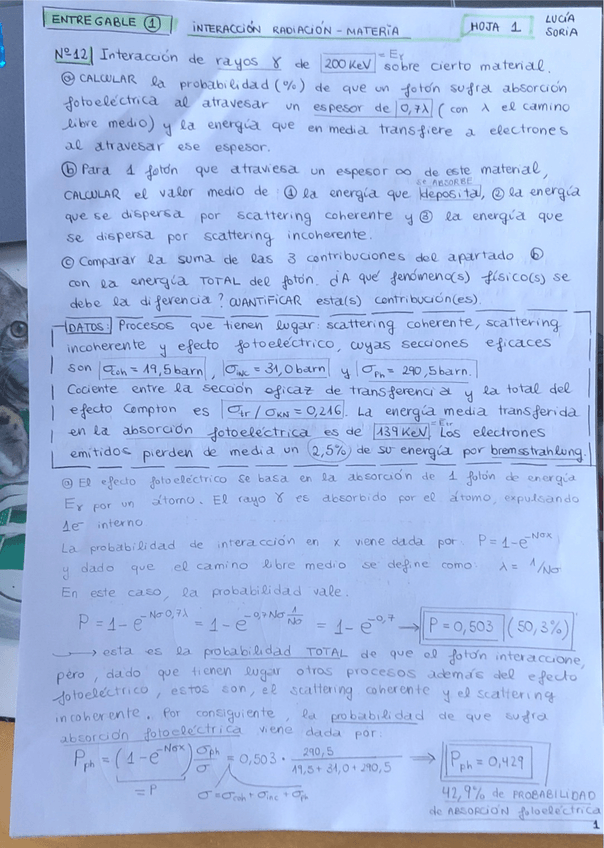 ENTREGABLE ① INTERACCIÓN RADIACIÓN - MATERIA HOJA 1 LUCÍA SORIA
Nº12| Interacción de rayos γ de 200 KeV = Eγ sobre cierto material.
ⓐ CALCULAR la probabilidad (%) de que un fotón sufra absorción
fotoeléctrica al atravesar un espesor de 0,7λ (con λ el camino
libre medio) y la energía que en media transfiere a electrones
al atravesar ese espesor.
ⓑ Para 1 fotón que atraviesa un espesor ∞ de este material,
CALCULAR el valor medio de: ① la energía que se ABSORBE deposita, ② la energía
que se dispersa por scattering coherente y ③ la energía que
se dispersa por scattering incoherente.
ⓒ Comparar la suma de las 3 contribuciones del apartado ⓑ
con la energía TOTAL del fotón. ¿A qué fenómeno(s) físico(s) se
debe la diferencia? CUANTIFICAR esta(s) contribución(es).
DATOS: Procesos que tienen lugar: scattering coherente, scattering
incoherente y efecto fotoeléctrico, cuyas secciones eficaces
son σcoh = 19,5 barn, σINC = 31,0 barn y σPh = 290,5 barn.
Cociente entre la sección eficaz de transferencia y la total del
efecto Compton es σtr/σKN = 0,216. La energía media transferida
en la absorción fotoeléctrica es de 139 KeV = Etr Los electrones
emitidos pierden de media un 2,5% de su energía por bremsstrahlung.
ⓐ El efecto fotoeléctrico se basa en la absorción de 1 fotón de energía
Eγ por un átomo. El rayo γ es absorbido por el átomo, expulsando
1e⁻ interno
La probabilidad de interacción en x viene dada por: P = 1-e^-Nσx
y dado que el camino libre medio se define como: λ = 1/Nσ
En este caso, la probabilidad vale:
P = 1-e^-Nσ0,7λ = 1-e^-0,7Nσ 1/Nσ = 1-e^-0,7 → P = 0,503 (50,3%)
→ esta es la probabilidad TOTAL de que el fotón interaccione,
pero, dado que tienen lugar otros procesos además del efecto
fotoeléctrico, estos son, el scattering coherente y el scattering
incoherente. Por consiguiente, la probabilidad de que sufra
absorción fotoeléctrica viene dada por:
Pph = (1-e^-Nσx) σph/σ = 0,503 · 290,5/19,5+31,0+290,5 → Pph = 0,429
= P σ = σcoh + σinc + σph
42,9% de PROBABILIDAD
de ABSORCIÓN fotoeléctrica
1